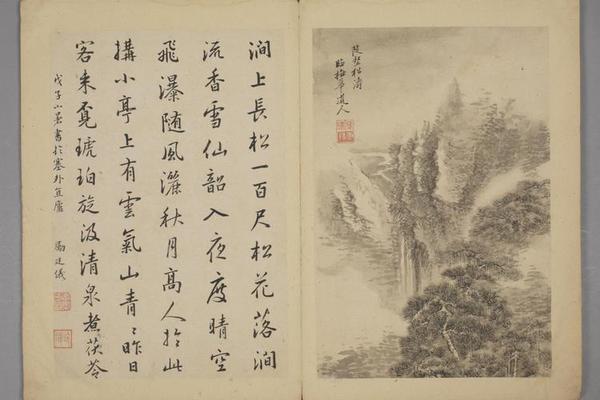 壑松濤
臨梅華道人
澗上長松一百尺松花落澗
流香雪仙韶入夜度晴空
飛瀑随風灑秋月高人於此
搆小亭上有雲氣山青〻昨日
客来覔琥珀旋汲清泉煮茯苓
戊子小暑書於塞外直廬 勵廷儀